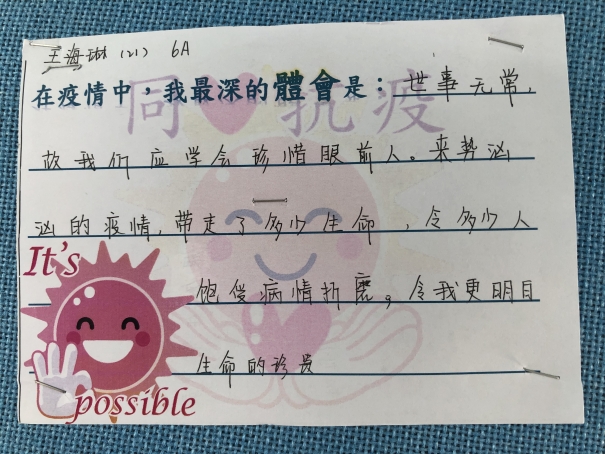 王海琳 (21) 6A
同 抗疫
在疫情中，我最深的體會是：世事无常，
故我们应学会珍惜眼前人。来势汹
汹的疫情，带走了多少生命，令多少人
It's
饱受病情折磨。令我更明白
生命的珍贵
possible